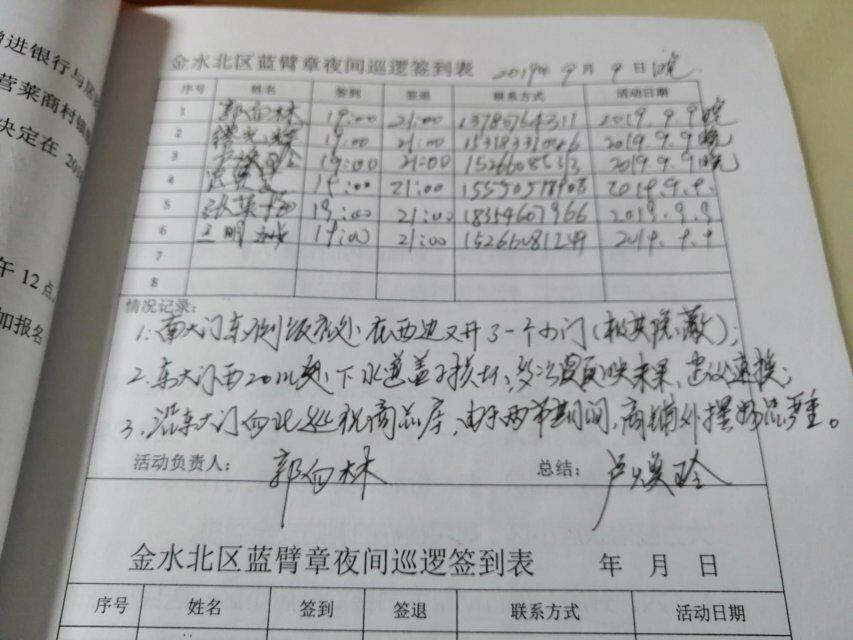 增进银行与居
营莱商村镇
决定在 201
午 12 点
如报名
金水北区蓝臂章夜间巡逻签到表 2019年9月9日晚
序号 姓名 签到 签退 联系方式 活动日期
1 郭向林 19:00 21:00 13780764311 2019.9.9晚
2 19:00 21:00 2019.9.9晚
3 19:00 21:00 2019.9.9晚
4 19:00 21:00 2019.9.9.
5 19:00 21:00 18354607966 2019.9.9
6 王明 19:00 21:00 15266081249 2019.9.9
7
8
情况记录:
1.南大门东侧饭店处,在西边又开了一个小门(极其隐蔽);
2.东大门西20米处,下水道盖子损坏,多次反映未果,建议速换;
3.沿东大门向北巡视商品房,由于两节期间,商铺外摆物品严重。
活动负责人: 郭向林 总结: 卢焕玲
金水北区蓝臂章夜间巡逻签到表 年 月 日
序号 姓名 签到 签退 联系方式 活动日期